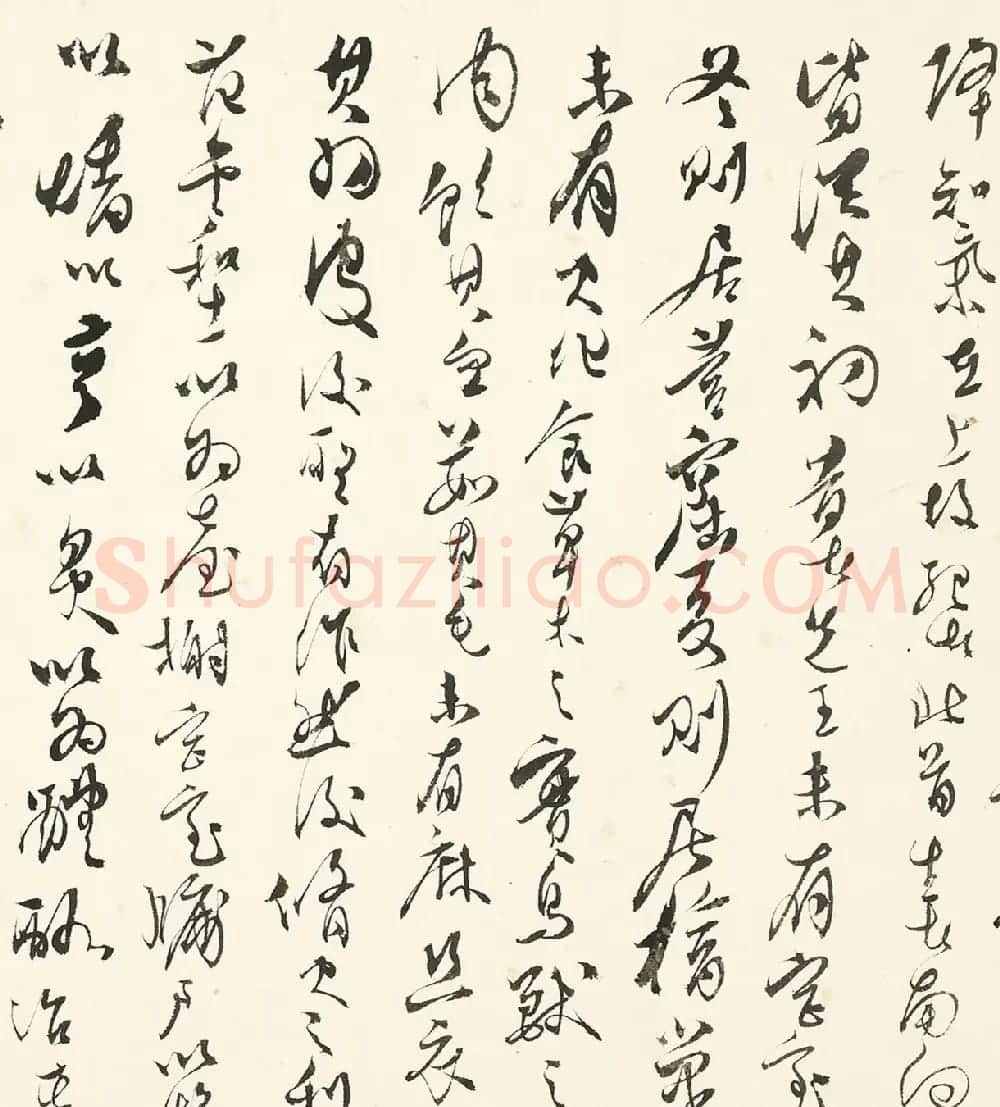 降知氣在上故死者北首生者南向
皆從其初昔者先王未有宮室
冬則居營窟夏則居橧巢
未有火化食草木之實鳥獸之
肉飲其血茹其毛未有麻絲衣
其羽皮後聖有作然後脩火之利
范金合土以為臺榭宮室牖戶以炮
以燔以亨以炙以為醴酪治其
Shufaziliao.COM